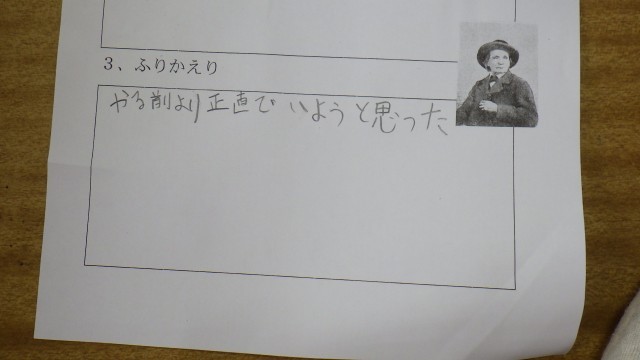 3、ふりかえり
やる前より正直でいようと思った